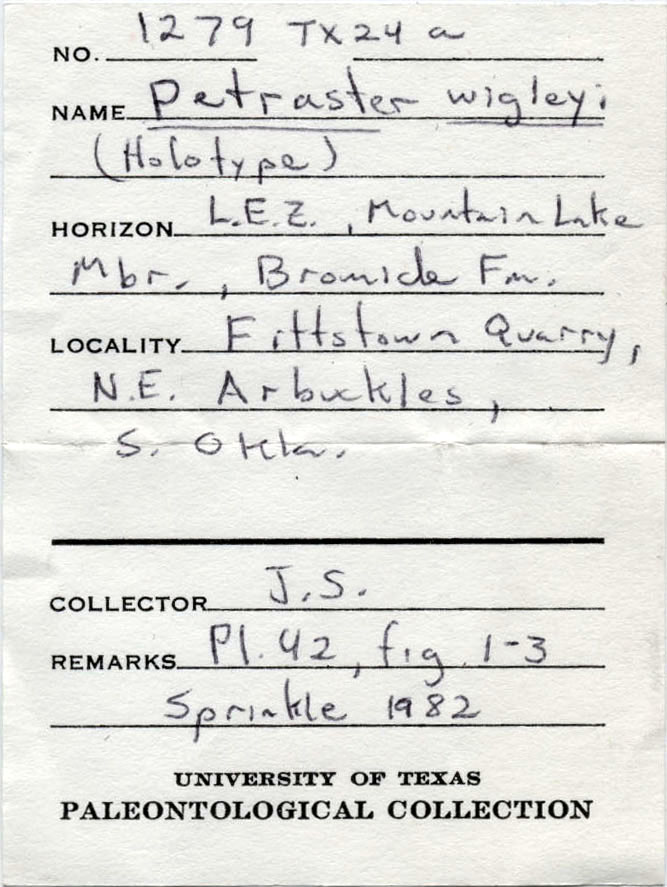 NO. 1279 TX24 a
NAME Petraster wigleyi
(Holotype)
HORIZON L.E.Z., Mountain Lake
Mbr., Bromide Fm.
LOCALITY Fittstown Quarry,
N.E. Arbuckles,
S. Okla.
COLLECTOR J.S.
REMARKS Pl. 42, fig. 1-3
Sprinkle 1982
UNIVERSITY OF TEXAS
PALEONTOLOGICAL COLLECTION